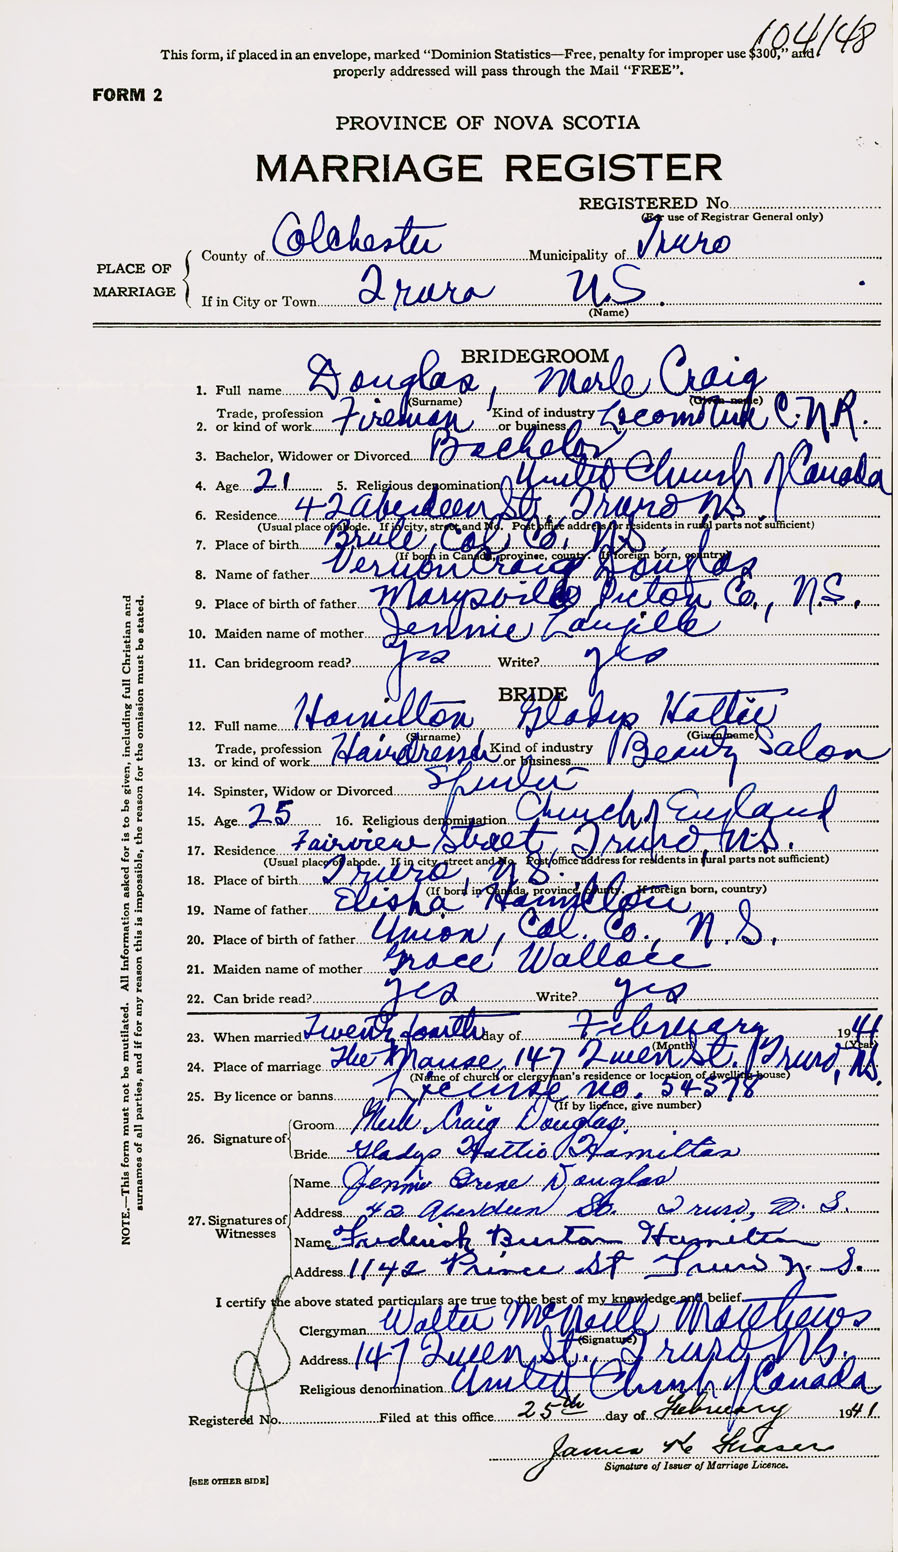 104/48
This form, if placed in an envelope, marked “Dominion Statistics—Free, penalty for improper use $300,” and
properly addressed will pass through the Mail “FREE”.
FORM 2
PROVINCE OF NOVA SCOTIA
MARRIAGE REGISTER
REGISTERED No.
(For use of Registrar General only)
PLACE OF MARRIAGE
County of Colchester Municipality of Truro
If in City or Town Truro N.S.
(Name)
BRIDEGROOM
1. Full name Douglas, Merle Craig
(Surname) (Given name)
2. Trade, profession or kind of work Fireman Kind of industry or business Locomotive C.N.R.
3. Bachelor, Widower or Divorced Bachelor
4. Age 21 5. Religious denomination United Church of Canada
6. Residence 42 Aberdeen St., Truro N.S.
(Usual place of abode. If in city, street and No. Post office address for residents in rural parts not sufficient)
7. Place of birth Brule, Col. Co. N.S.
(If born in Canada, province, county. If foreign born, country)
8. Name of father Vernon Craig Douglas
9. Place of birth of father Marysville Pictou Co., N.S.
10. Maiden name of mother Jennie
11. Can bridegroom read? yes Write? yes
BRIDE
12. Full name Hamilton Gladys Hattie
(Surname) (Given name)
13. Trade, profession or kind of work Hairdresser Kind of industry or business Beauty Salon
14. Spinster, Widow or Divorced Spinster
15. Age 25 16. Religious denomination Church of England
17. Residence Fairview Street, Truro, N.S.
(Usual place of abode. If in city, street and No. Post office address for residents in rural parts not sufficient)
18. Place of birth Truro, N.S.
(If born in Canada, province, county. If foreign born, country)
19. Name of father Elisha Hamilton
20. Place of birth of father Union, Col. Co., N.S.
21. Maiden name of mother Grace Wallace
22. Can bride read? yes Write? yes
23. When married Twenty fourth day of February 1941
(Month) (Year)
24. Place of marriage The Manse, 147 Queen St. Truro, N.S.
(Name of church or clergyman's residence or location of dwelling house)
25. By licence or banns License no. 54578
(If by licence, give number)
26. Signature of Groom Merle Craig Douglas.
Bride Gladys Hattie Hamilton
27. Signatures of Witnesses
Name Jennie Irene Douglas
Address 42 Aberdeen St. Truro, N. S.
Name Frederick Burton Hamilton
Address 1142 Prince St Truro N. S.
I certify the above stated particulars are true to the best of my knowledge and belief.
Clergyman Walter McNeill Matthews
(Signature)
Address 147 Queen St., Truro, N.S.
Religious denomination United Church of Canada
Registered No. Filed at this office 25th day of February 1941
James K Fraser
Signature of Issuer of Marriage Licence.
[SEE OTHER SIDE]
NOTE.—This form must not be mutilated. All information asked for is to be given, including full Christian and
surnames of all parties, and if for any reason this is impossible, the reason for the omission must be stated.